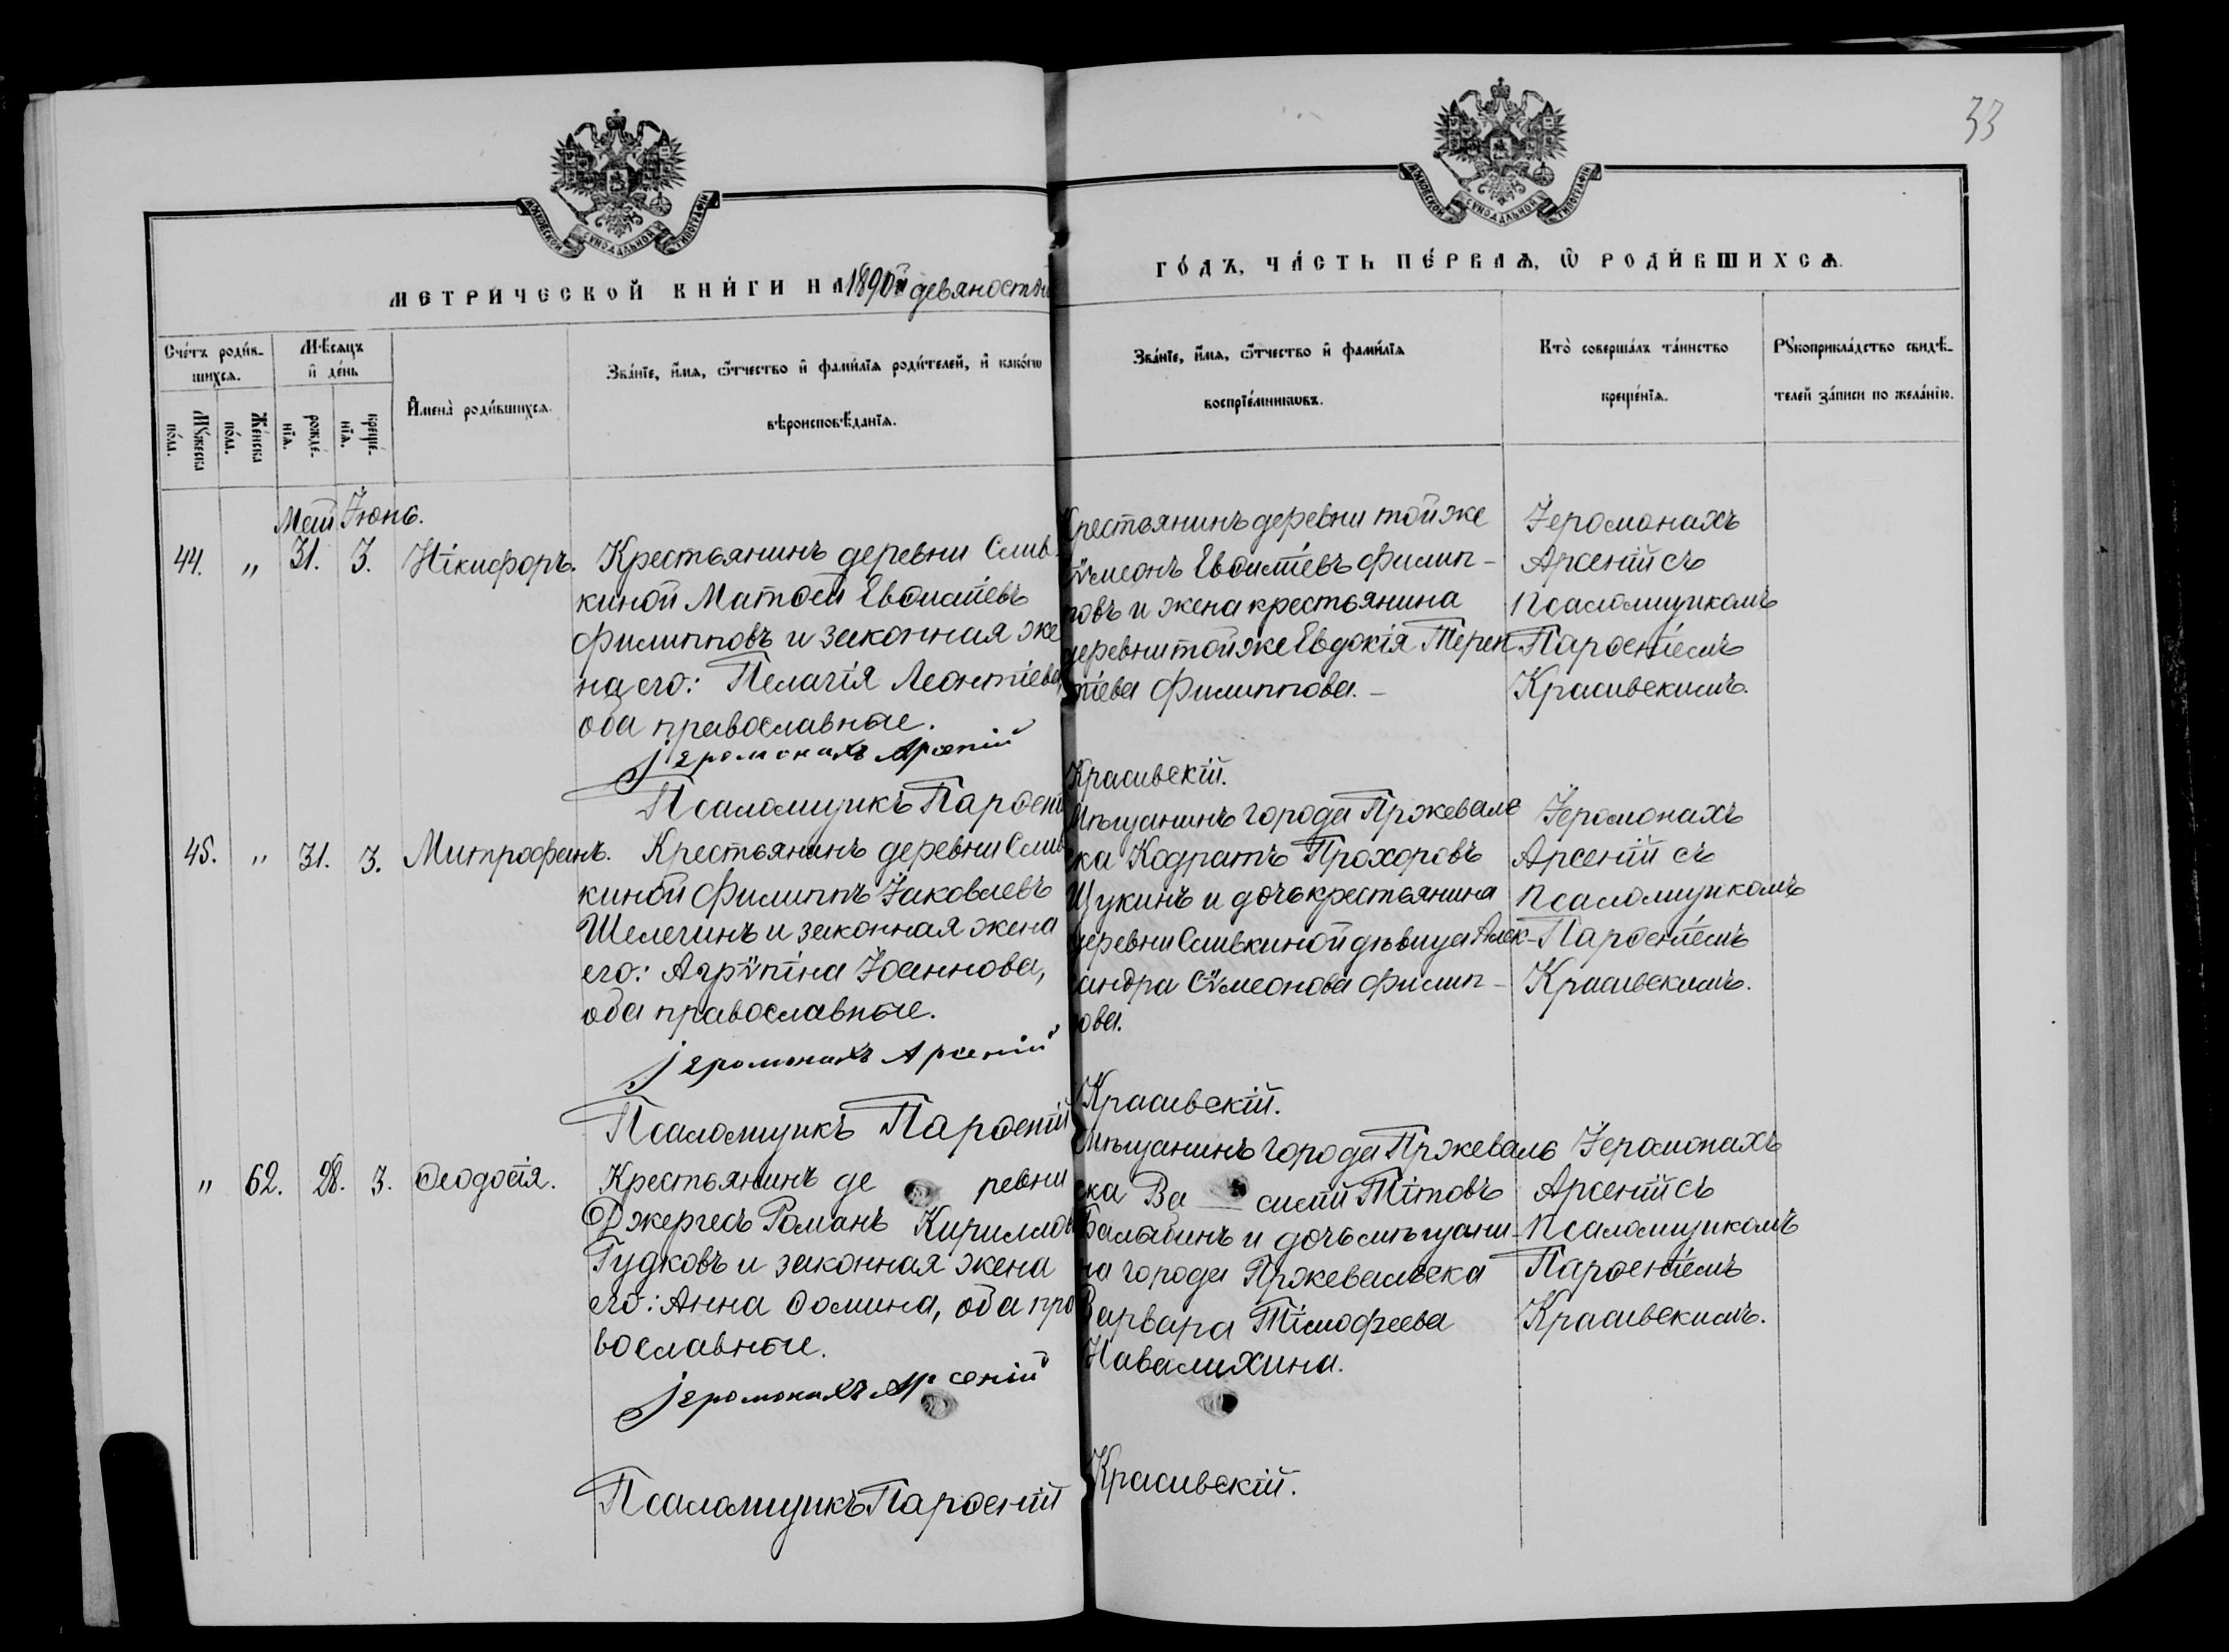 33
МОСКОВСКОЙ СУНОДАЛЬНОЙ ТИПОГРАФІИ
МОСКОВСКОЙ СУНОДАЛЬНОЙ ТИПОГРАФІИ
МЕТРИ́ЧЕСКОЙ КНИ́ГИ НА 1890й девяностый
ГО́ДЪ, ЧА́СТЬ ПЕ́РВАѦ, Ѡ҆ РОДИ́ВШИХСѦ.
Сче́тъ роди́в-
шихсѧ.
Мꙋ́жеска
по́ла.
Же́нска
по́ла.
Мѣ́сѧцъ
и҆ де́нь
рожде́-
нїѧ.
креще́-
нїѧ.
И҆мена̀ роди́вшихсѧ.
Зва́нїе, и҆́мѧ, ѻ҆́тчество и҆ фами́лїѧ роди́телей, и҆ како́гѡ
вѣроисповѣ́данїѧ.
Зва́нїе, и҆́мѧ, ѻ҆́тчество и҆ фами́лїѧ
воспрїе́мникѡвъ.
Кто̀ соверша́лъ та́инство
креще́нїѧ.
Рꙋкоприкла́дство свидѣ́-
телей за́писи по жела́нїю.
Май Іюнь.
44. " 31. 3. Нікифоръ.
Крестьянинъ деревни Слив-
киной Матѳей Евѳиміевъ
Филипповъ и законная же
на его: Пелагія Леонтіева,
оба православные.
Іеромонахъ Арсеній
Псаломщикъ Парѳеній
Крестьянинъ деревни той же
Сѵмеонъ Евѳиміевъ Филип-
повъ и жена крестьянина
деревни той же Евдокія Терен
тіева Филиппова. -
Красивскій.
Іеромонахъ
Арсеній съ
псаломщикомъ
Парѳеніемъ
Красивскимъ.
45. " 31. 3. Митрофанъ.
Крестьянинъ деревни Слив
киной Филиппъ Іаковлевъ
Шелегинъ и законная жена
его: Агрѵпіна Іоаннова,
оба православные.
Іеромонахъ Арсеній
Псаломщикъ Парѳеній
Мѣщанинъ города Пржеваль
ска Кодратъ Прохоровъ
Щукинъ и дочь крестьянина
деревни Сливкиной дѣвица Алек-
сандра Сѵмеонова Филип-
ова.
Красивскій.
Іеромонахъ
Арсеній съ
псаломщикомъ
Парѳеніемъ
Красивскимъ.
" 62. 28. 3. Ѳеодосія.
Крестьянинъ де ревни
Джергесъ Романъ Кирилловъ
Гудковъ и законная жена
его: Анна Ѳомина, оба пра
вославные.
Іеромонахъ Арсеній
Псаломщикъ Парѳеній
Мѣщанинъ города Пржеваль
ска Ва силій Тітовъ
Балабинъ и дочь мѣщани-
на города Пржевальска
Варвара Тімофеева
Навалихина.
Красивскій.
Іеромонахъ
Арсеній съ
псаломщикомъ
Парѳеніемъ
Красивскимъ.